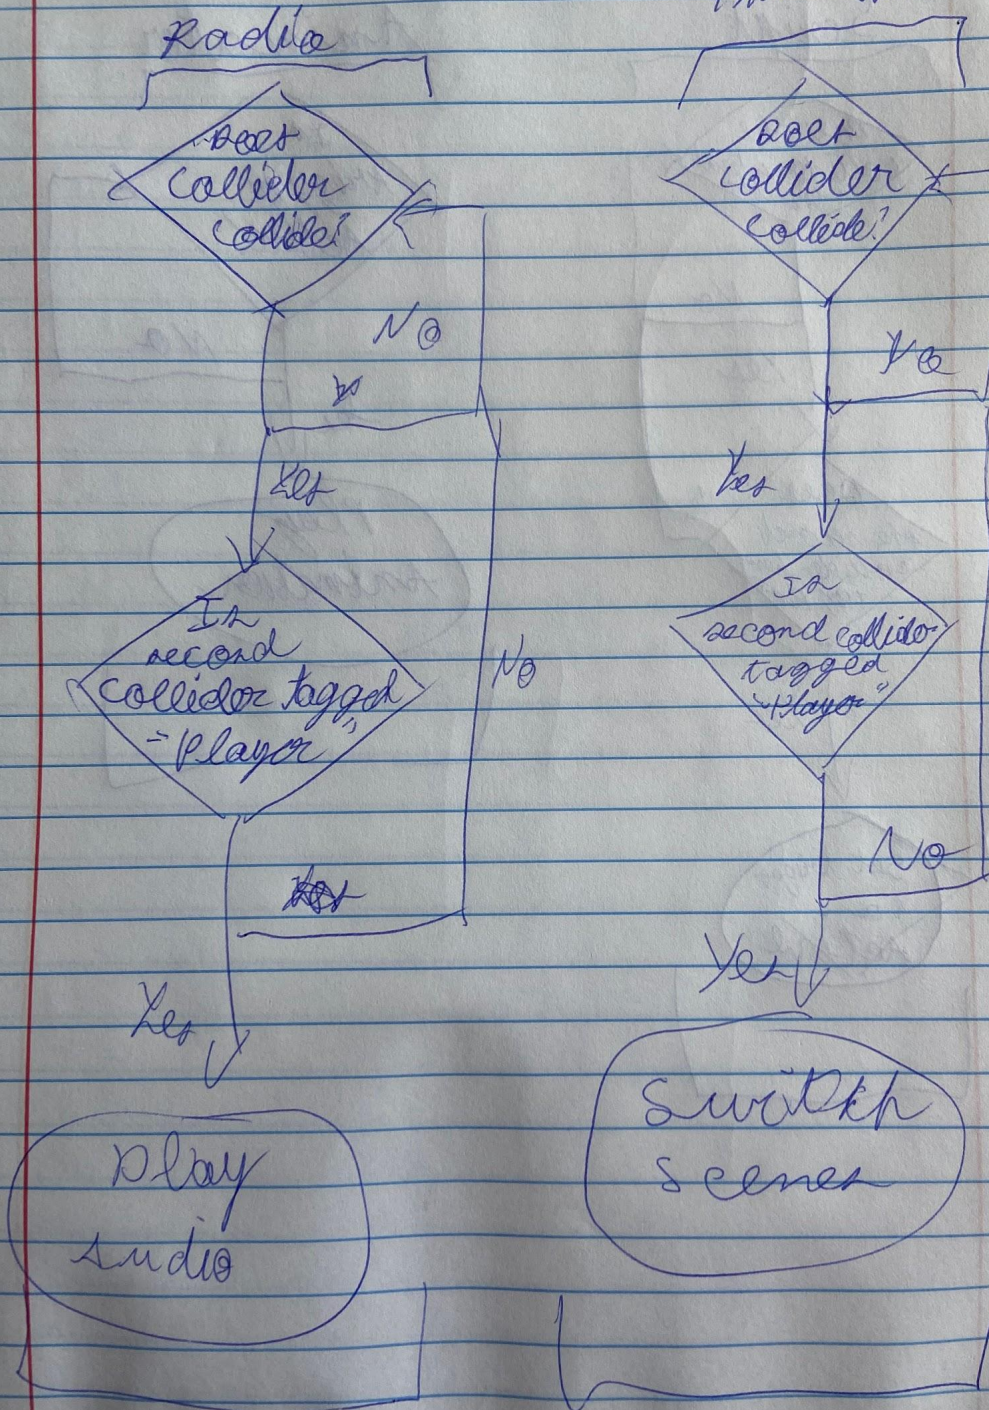 Radio
Does
collider
collide?
No
Yes
Is
second
collider tagged
"Player"
No
Yes
Play
Audio
Does
collider
collide?
No
Yes
Is
second collider
tagged
"Player"
No
Yes
Switch
Scenes